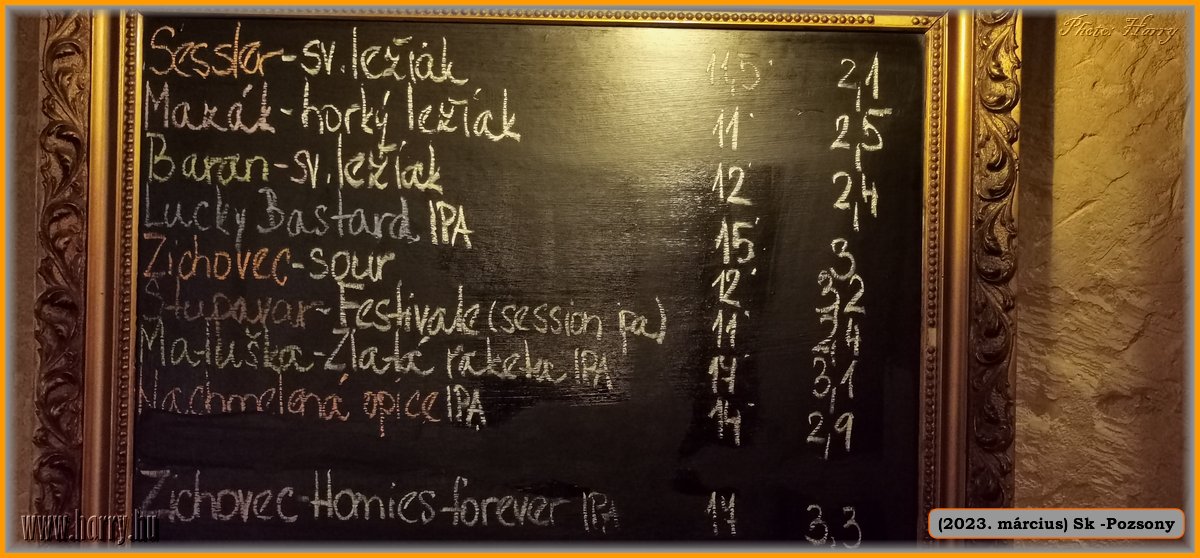 Photo: Harry
Sessler-sv. ležiak 11,5° 2,1
Mazák-horký ležiak 11° 2,5
Baran-sv. ležiak 12 2,4
Lucky Bastard IPA 15° 3
Zichovec-sour 12° 3,2
Stupavar-Festivale (session ipa) 11° 2,4
Matuška-Zlatá raketa IPA 17° 3,1
Nachmelená opice IPA 14° 2,9
Zichovec-Homies forever IPA 17° 3,3
www.harry.hu
(2023. március) Sk -Pozsony